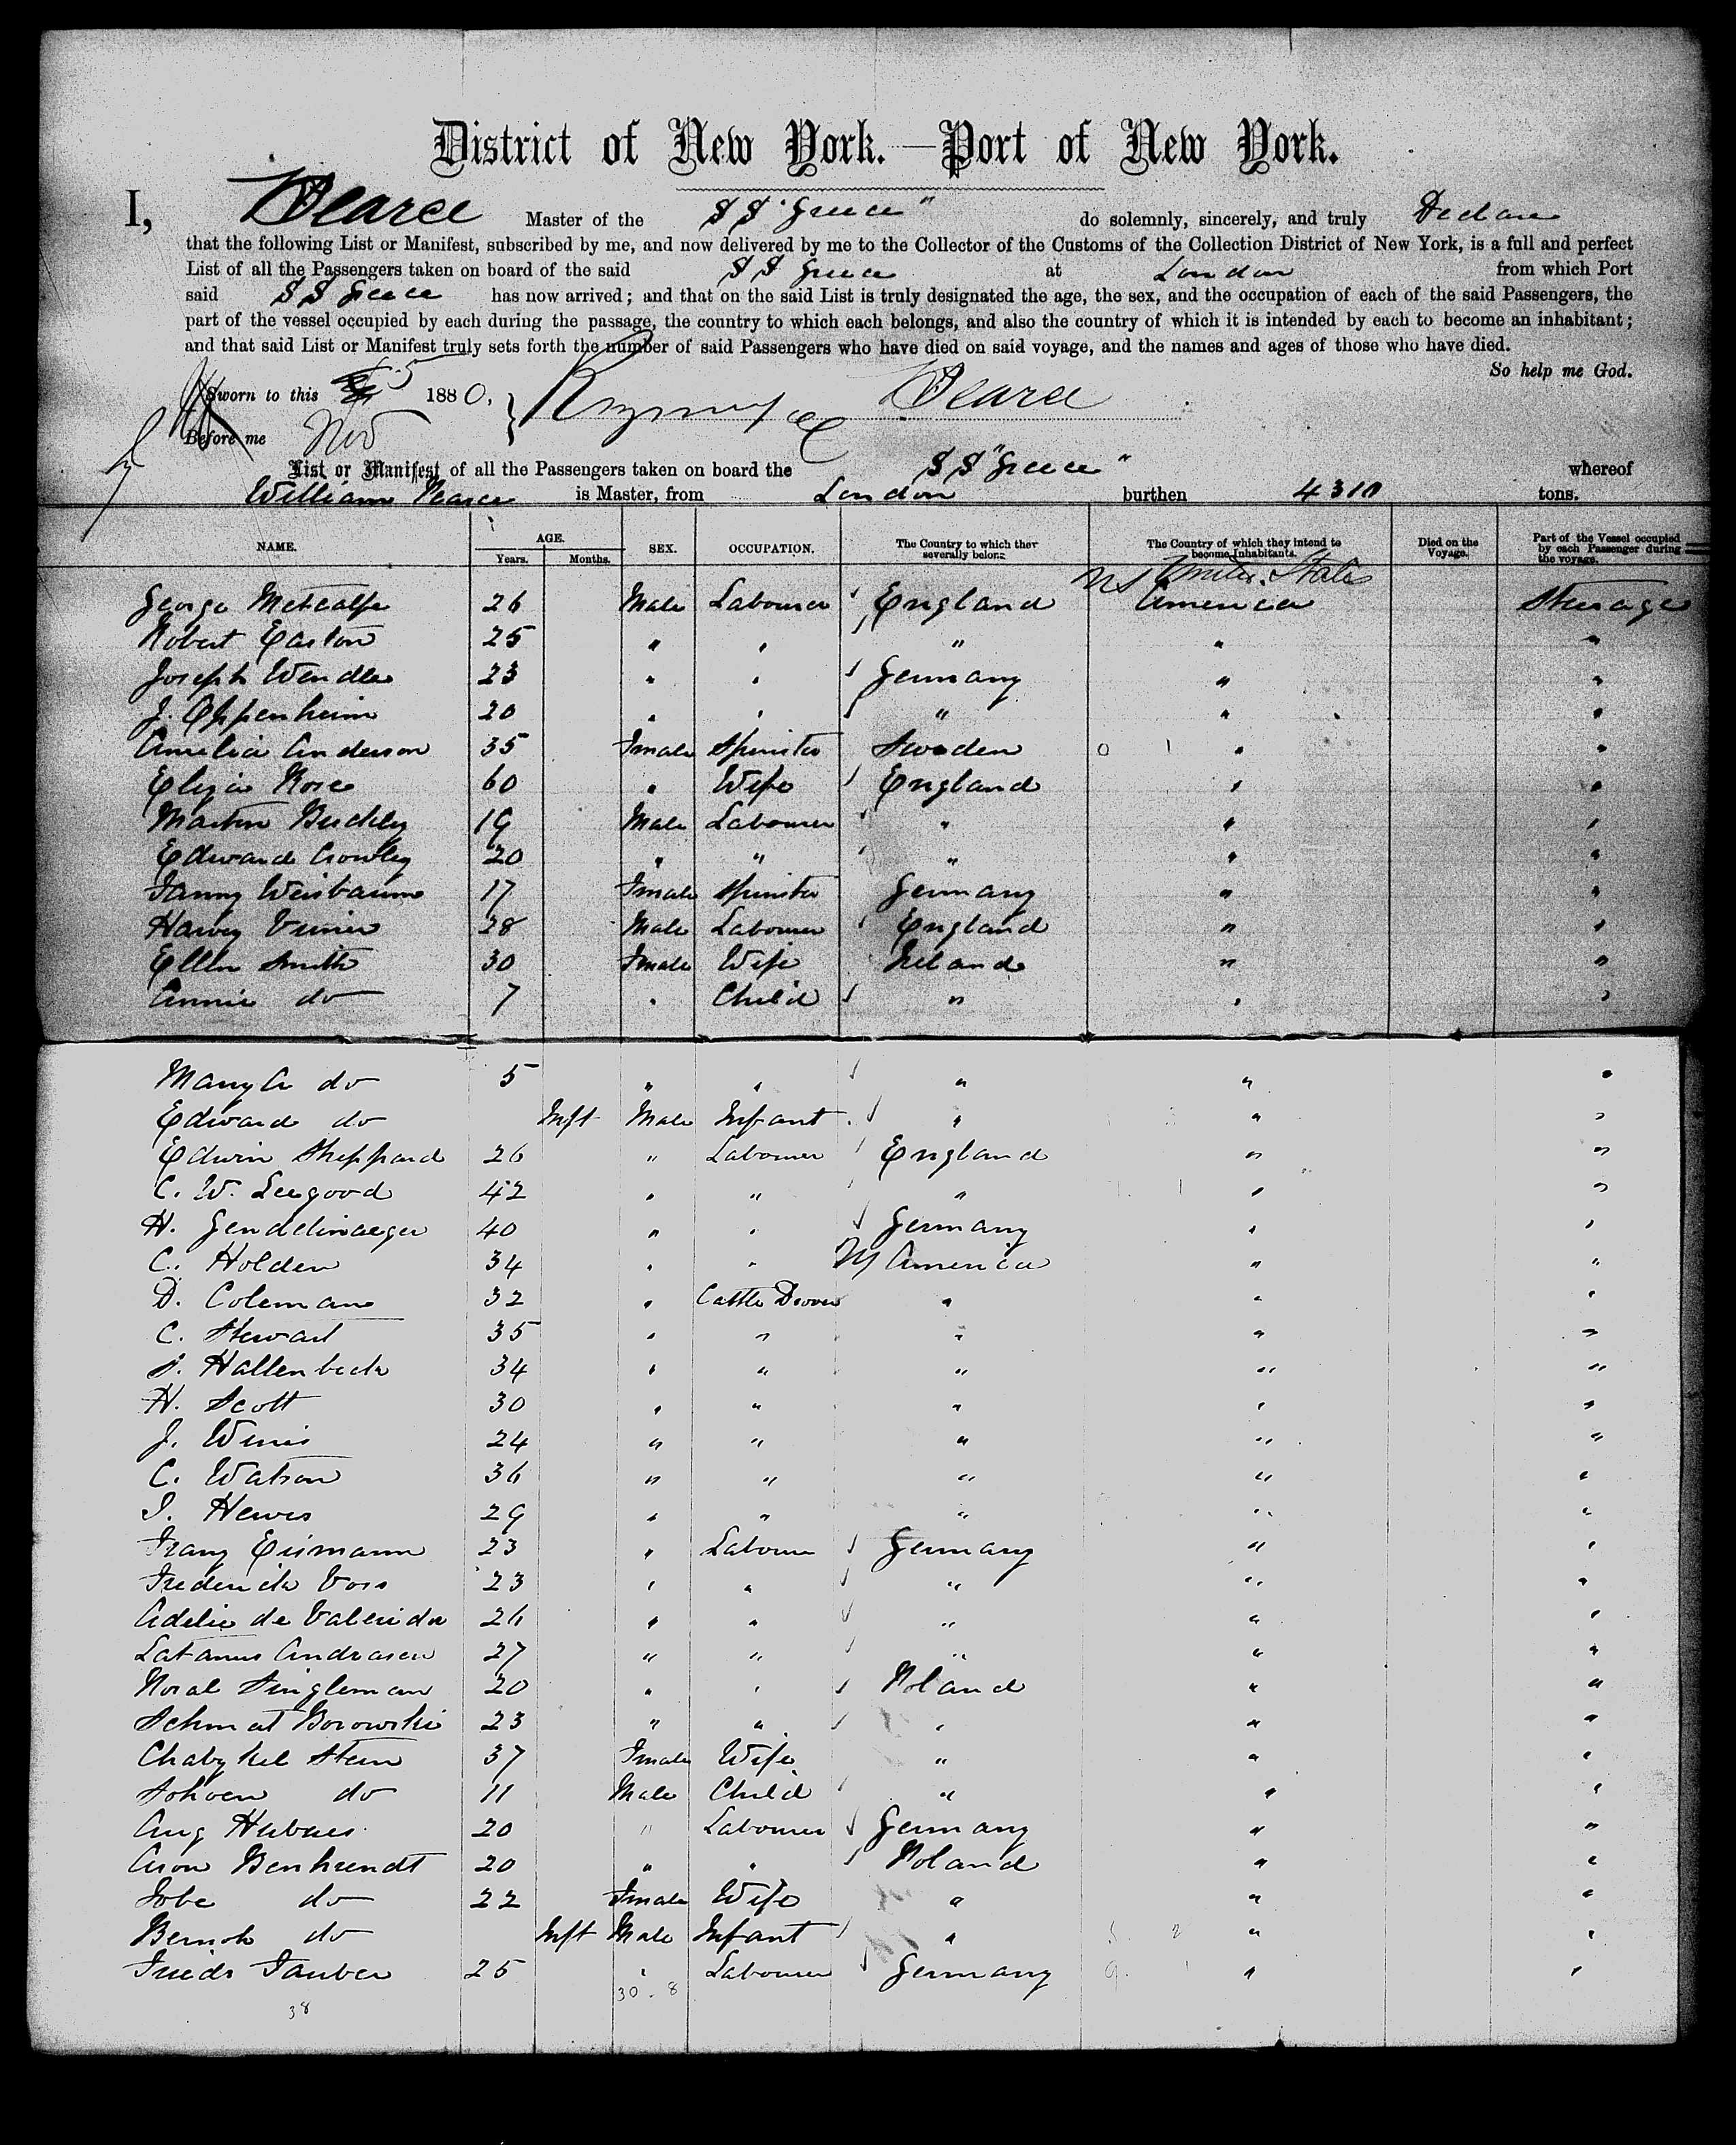 District of New York.—Port of New York.
I, W Pearce Master of the SS "Greece" do solemnly, sincerely, and truly Declare
that the following List or Manifest, subscribed by me, and now delivered by me to the Collector of the Customs of the Collection District of New York, is a full and perfect
List of all the Passengers taken on board of the said SS Greece at London from which Port
said SS Greece has now arrived; and that on the said List is truly designated the age, the sex, and the occupation of each of the said Passengers, the
part of the vessel occupied by each during the passage, the country to which each belongs, and also the country of which it is intended by each to become an inhabitant;
and that said List or Manifest truly sets forth the number of said Passengers who have died on said voyage, and the names and ages of those who have died.
So help me God.
Sworn to this 5 1880, Pearce
Before me Nov
List or Manifest of all the Passengers taken on board the SS "Greece" whereof
William Pearce is Master, from London burthen 4310 tons.
NAME. AGE. Years. Months. SEX. OCCUPATION. The Country to which they severally belong. The Country of which they intend to become Inhabitants. Died on the Voyage. Part of the Vessel occupied by each Passenger during the voyage.
United States
George Metcalfe 26 Male Labourer England America Steerage
Robert Easton 25 " " " " "
Joseph Wendler 23 " " Germany " "
J. Oppenheim 20 " " " " "
Amelia Anderson 35 Female Spinster Sweden " "
Eliza Rose 60 " Wife England " "
Martin Buckley 19 Male Labourer " " "
Edward Crowley 20 " " " " "
Fanny Weisbaum 17 Female Spinster Germany " "
Harvey 28 Male Labourer England " "
Ellen Smith 30 Female Wife Ireland " "
Annie do 7 " Child " " "
Mary A do 5 " " " " "
Edward do Inft Male Infant " " "
Edwin Sheppard 26 " Labourer England " "
C. W. Seegood 42 " " " " "
H. 40 " " Germany " "
C. Holden 34 " " America " "
D. Coleman 32 " Cattle Drover " " "
C. Stewart 35 " " " " "
Hallenbeck 34 " " " " "
H. Scott 30 " " " " "
J. 24 " " " " "
C. Watson 36 " " " " "
Hewes 29 " " " " "
Franz Eismann 23 " Labourer Germany " "
Frederick Voss 23 " " " " "
Adelie de 26 " " " " "
Andrasen 27 " " " " "
Singleman 20 " " Poland " "
Borowski 23 " " " " "
Stein 37 Female Wife " " "
do 11 Male Child " " "
Aug Hubner 20 " Labourer Germany " "
Aron 20 " " Poland " "
do 22 Female Wife " " "
do Inft Male Infant " " "
Tauber 25 " Labourer Germany " "
38 30. 8